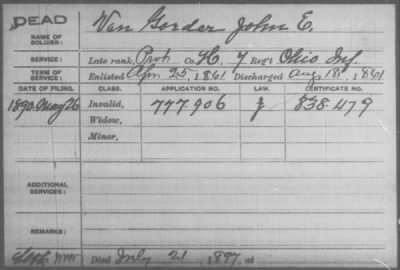 DEAD
Van Gorder John E.
NAME OF SOLDIER:
SERVICE: Late rank, Priv Co. H, 7 Reg't Ohio Inf.
TERM OF SERVICE: Enlisted Apr. 25, 1861 Discharged Aug. 18, 1861
DATE OF FILING. CLASS. APPLICATION NO. LAW. CERTIFICATE NO.
1890 May 26 Invalid, 777.906 838.479
Widow,
Minor,
ADDITIONAL SERVICES:
REMARKS:
Died July 21, 1897, at